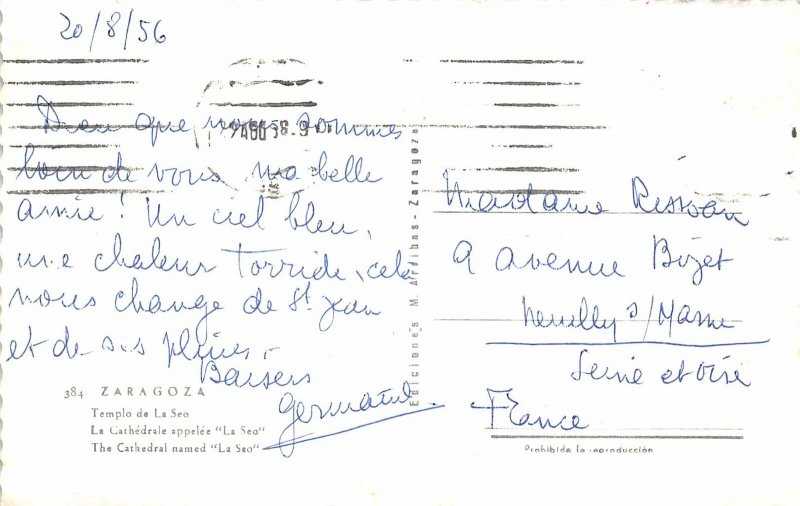 20/8/56
Dieu que nous sommes
loin de vous ma belle
amie! Un ciel bleu,
une chaleur torride, cela
nous change de St Jean
et de ses pluies.
Baisers
Germaine
384 ZARAGOZA
Templo de La Seo
La Cathédrale appelée "La Seo"
The Cathedral named "La Seo"
Ediciones M. Arribas - Zaragoza
Madame
9 avenue Bizet
Neuilly s/Marne
Seine et Oise
France
Prohibida la reproducción